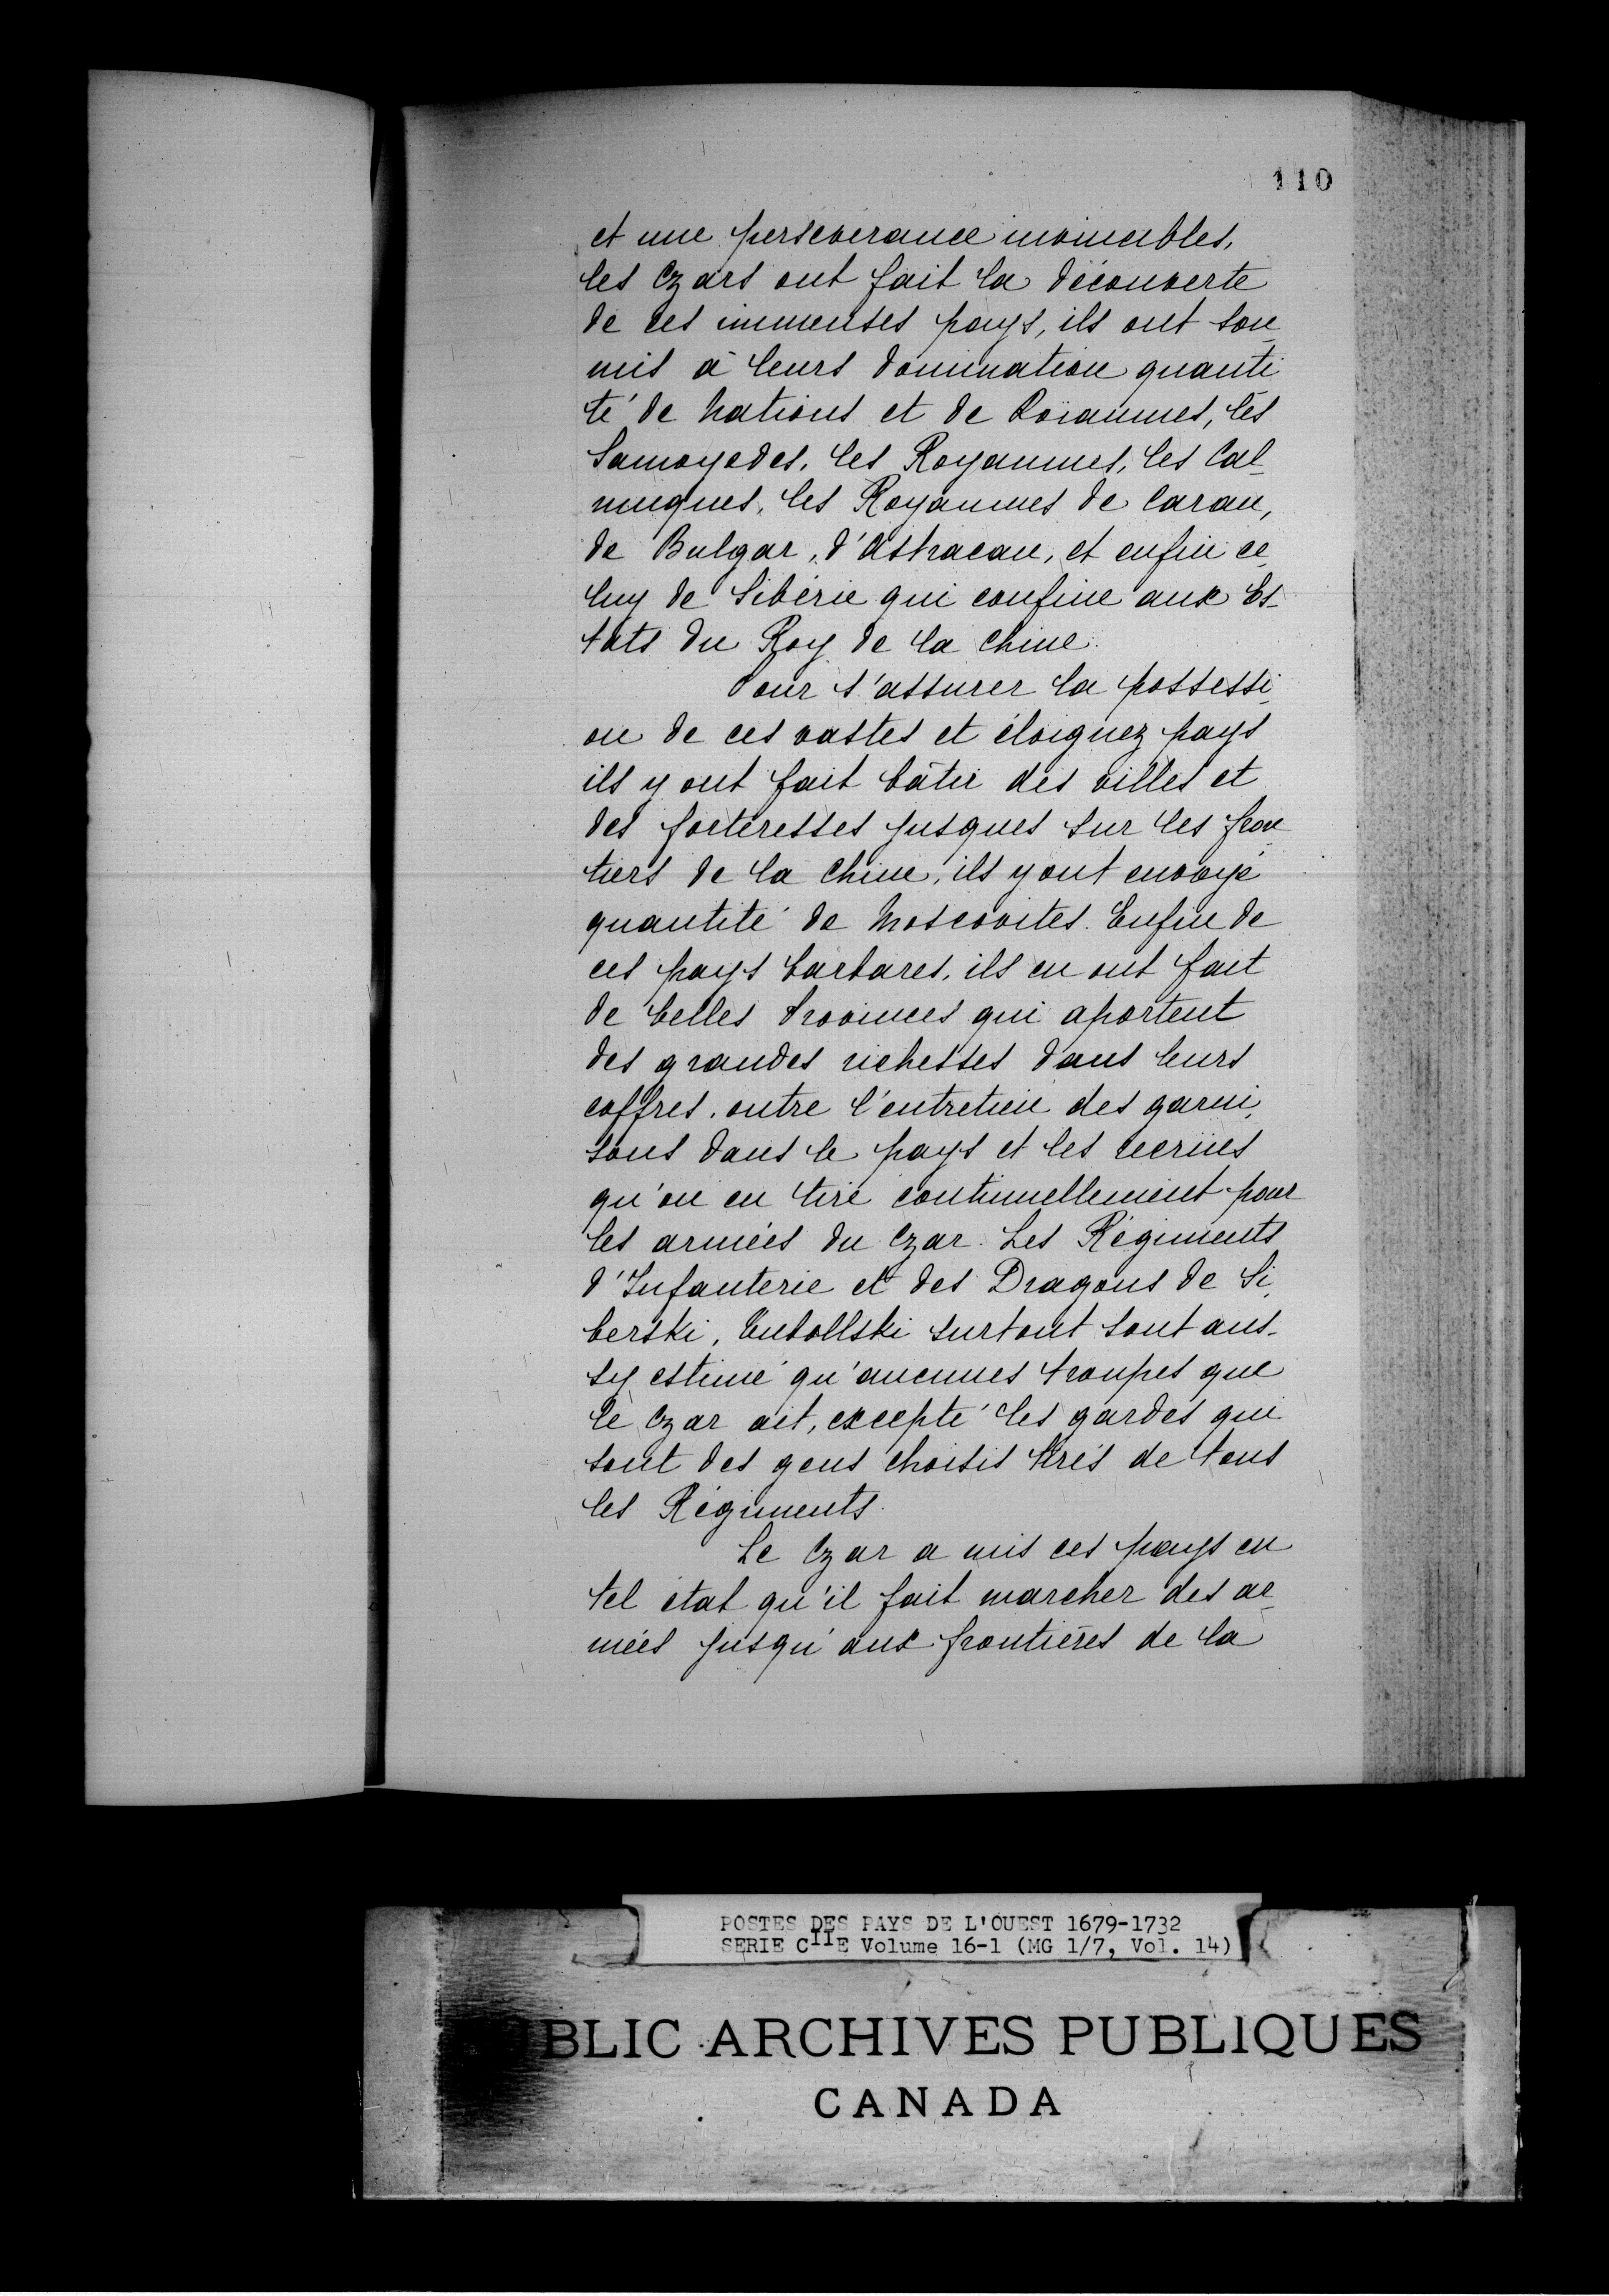 110
et une perséverance invincibles,
les Czars ont fait la découverte
de ces immenses pays, ils ont sou_
mis à leurs domination quanti
té de Nations et de Roïaumes, les
Samoyedes, les Royaumes, les Cal_
muques, les Royaumes de Caran,
de Bulgar, d'Astracan, et enfin ce_
luy de Sibérie qui confine aux Es_
tats du Roy de la Chine.
Pour s'assurer la possessi_
on de ces vastes et éloignez pays
ils y ont fait bâtir des villes et
des forteresses jusques sur les fron_
tiers de la Chine, ils y ont envoyé
quantité de Moscovites. Enfin de
ces pays barbares, ils en ont fait
de belles Provinces qui aportent
des grandes richesses dans leurs
coffres, outre l'entretien des garni_
sons dans le pays et les recrües
qu'on en tire continuellement pour
les armées du Czar. Les Régiments
d'Infanterie et des Dragons de Si_
berski, surtout sont aus_
sy estimé qu'aucunes troupes que
le Czar ait, excepté les gardes qui
sont des gens choisis tirés de tous
les Régiments.
Le Czar a mis ces pays en
tel état qu'il fait marcher des ar_
mées jusqu'aux frontières de la
POSTES DES PAYS DE L'OUEST 1679-1732
SERIE CIIE Volume 16-1 (MG 1/7, Vol. 14)
BLIC ARCHIVES PUBLIQUES
CANADA